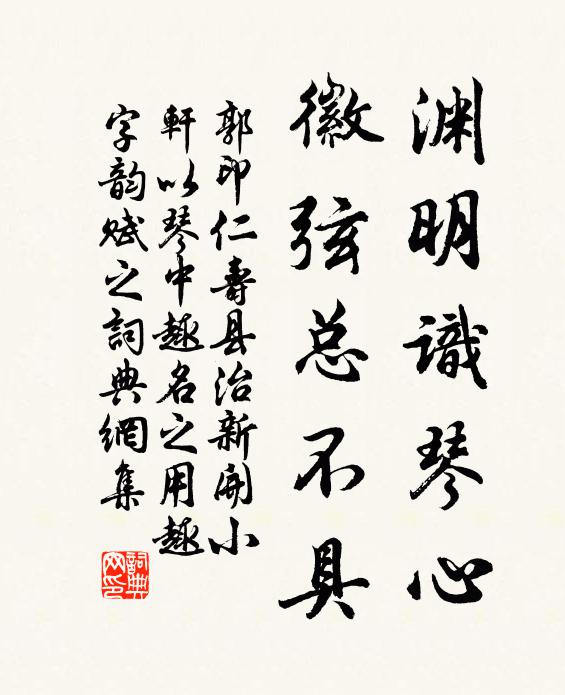 渊明識琴心
徽弦总不具
郭印仁壽县治新開小
軒以琴中趣名之用趣
字韵赋之詞典網集
詞典
网印